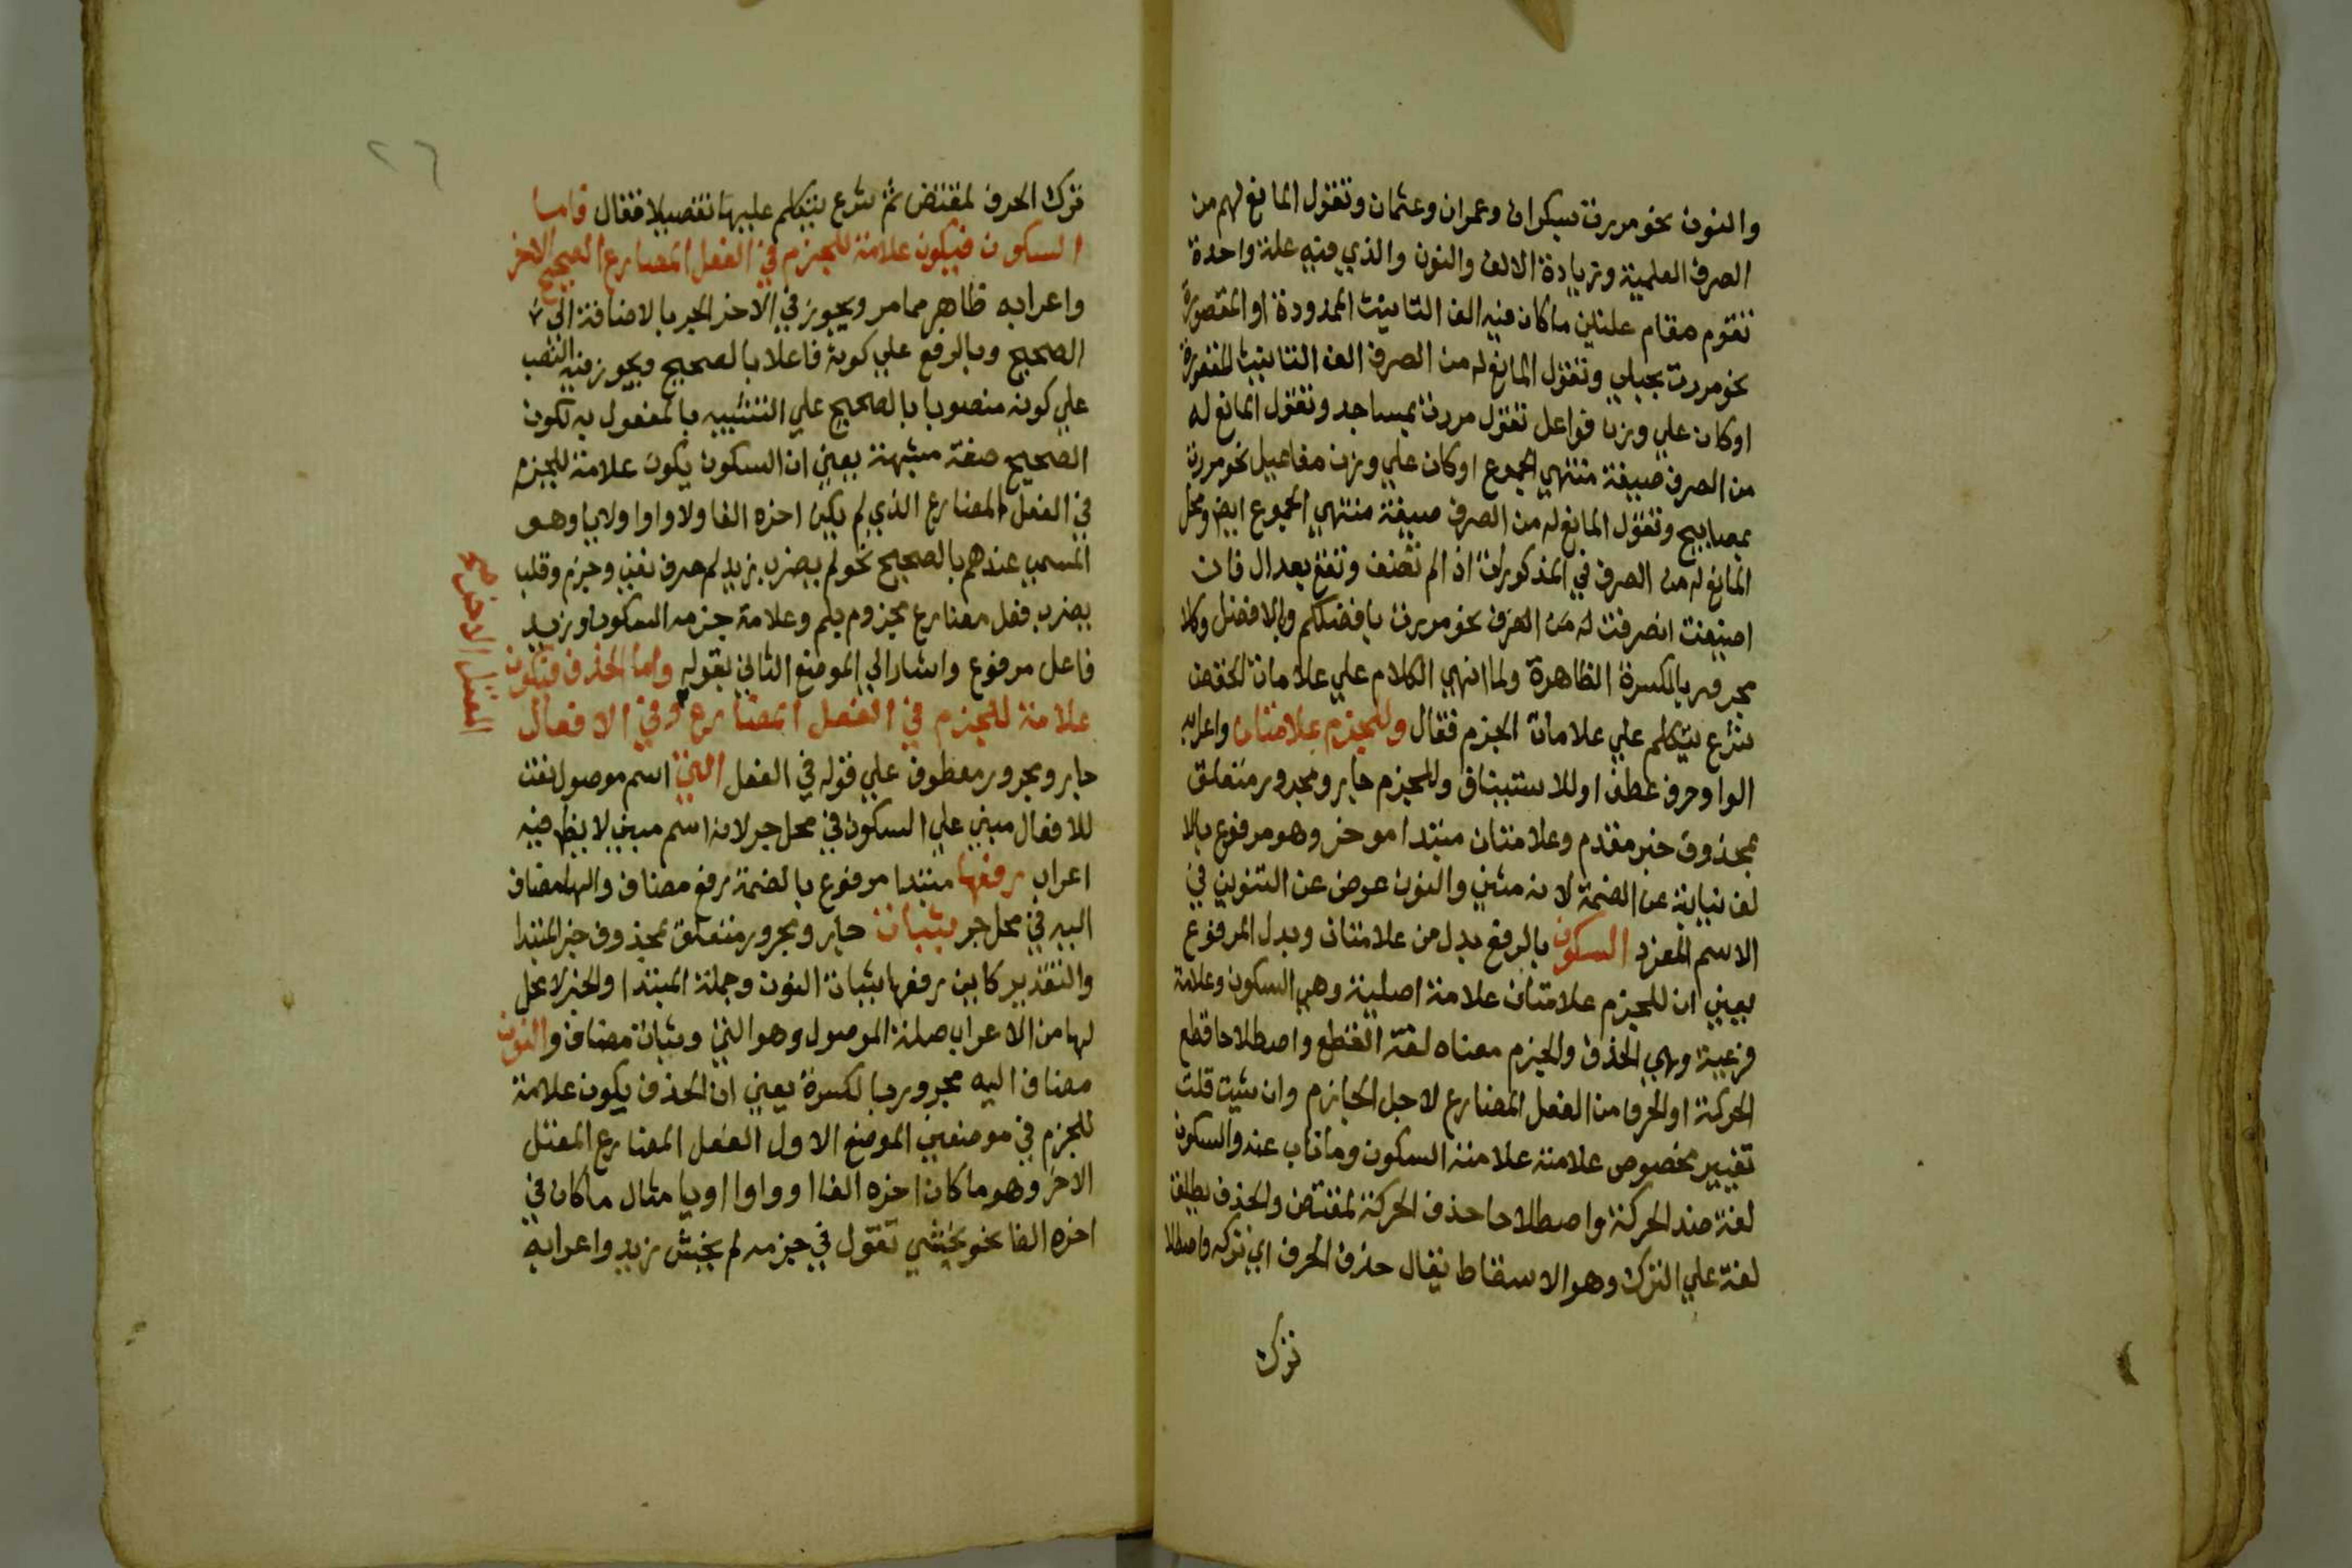 والنون نحو مررت بسكران وعمران وعثمان وتقول المانع لهم من
الصرف العلمية وزيادة الالف والنون والذي فيه علة واحدة
تقوم مقام علتين ماكان فيه الف التانيث الممدودة او المقصورة
نحو مررت بحبلي وتقول المانع له من الصرف الف التانيث المقصورة
اوكان علي وزن فواعل تقول مررت بمساجد وتقول المانع له
من الصرف صيغة منتهي الجموع اوكان علي وزن مفاعيل نحو مررت
بمصابيح وتقول المانع له من الصرف صيغة منتهي الجموع ايض ومحل
المانع له من الصرف في المذكورات اذا لم تضف وتقع بعد ال فان
اضيفت انصرفت له من الصرف نحو مررت بافضلكم وبالافضل وكلا
مجرور بالكسرة الظاهرة ولما انهي الكلام علي علامات الخفض
شرع يتكلم علي علامات الجزم فقال وللجزم علامتان واعرابه
الواو حرف عطف او للاستيناف وللجزم جار ومجرور متعلق
بمحذوف خبر مقدم وعلامتان مبتدا موخر وهو مرفوع بالا
لف نيابة عن الضمة لانه مثني والنون عوض عن التنوين في
الاسم المفرد السكون بالرفع بدل من علامتان وبدل المرفوع
يعني ان للجزم علامتان علامة اصلية وهي السكون وعلامة
فرعية وهي الحذف والجزم معناه لغة القطع واصطلاحا قطع
الحركة او الحرف من الفعل المضارع لاجل الجازم وان شيت قلت
تغيير مخصوص علامته علامته السكون وماناب عنه والسكون
لغة ضد الحركة واصطلاحا حذف الحركة لمقتض والحذف يطلق
لغة علي الترك وهو الاسقاط يقال حذف الحرف اي تركه واصطلا
ترك
٢٦
ترك الحرف لمقتض ثم شرع يتكلم عليها تفصيلا فقال فاما
السكون فيكون علامة للجزم في الفعل المضارع الصحيح الاخر
واعرابه ظاهر ممامر ويجوز في الاخر الجر بالاضافة الي
الصحيح وبالرفع علي كونه فاعلا بالصحيح ويجوز فيه النصب
علي كونه منصوبا بالصحيح علي التشبيه بالمفعول به لكون
الصحيح صفة مشبهة يعني ان السكون يكون علامة للجزم
في الفعل المضارع الذي لم يكن اخره الفا ولا واوا ولايا وهو
المسمي عندهم بالصحيح نحو لم يضرب زيد لم حرف نفي وجزم وقلب
يضرب فعل مضارع مجزوم بلم وعلامة جزمه السكون وزيد
فاعل مرفوع واشار الي الموضع الثاني بقوله واما الحذف فيكون
علامة للجزم في الفعل المضارع وفي الافعال
المعتل الاخر صح
جار ومجرور معطوف علي قوله في الفعل التي اسم موصول نعت
للافعال مبني علي السكون في محل جر لانه اسم مبني لا يظهر فيه
اعراب رفعها مبتدا مرفوع بالضمة رفع مضاف والها مضاف
اليه في محل جر بثبات جار ومجرور متعلق بمحذوف خبر المبتدا
والتقدير كاين رفعها بثبات النون وجملة المبتدا والخبر لا محل
لها من الاعراب صلة الموصول وهو التي وثبات مضاف والنون
مضاف اليه مجرور بالكسرة يعني ان الحذف يكون علامة
للجزم في موضعين الموضع الاول الفعل المضارع المعتل
الاخر وهو ماكان اخره الفا او واوا او يا مثال ماكان في
اخره الفا نحو يخشي تقول في جزمه لم يخش زيد واعرابه